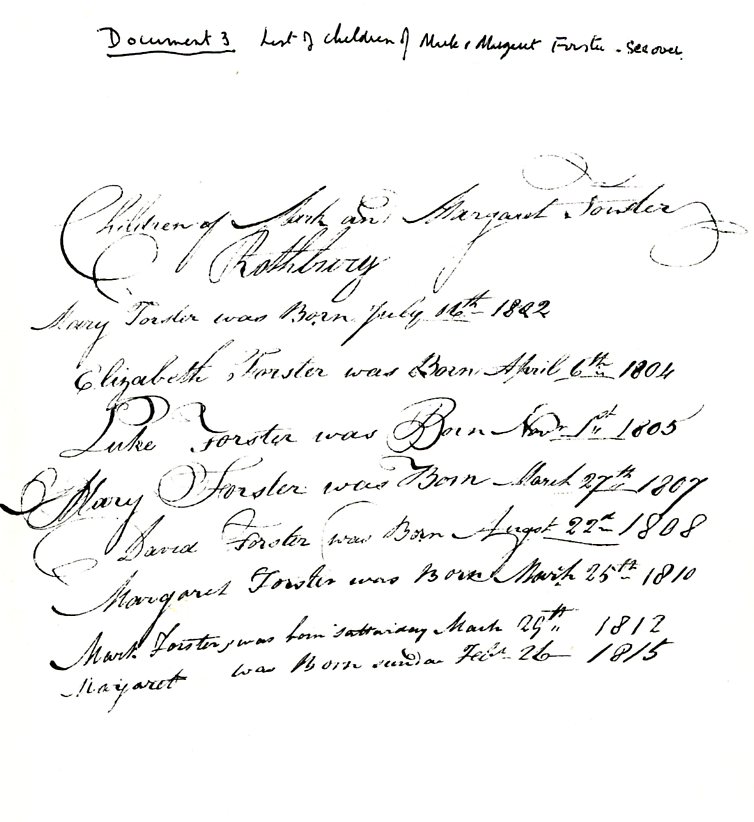 Document 3 List of children of Mark & Margaret Forster - see over.
Children of Mark and Margaret Forster
Rothbury
Mary Forster was Born July 16th 1802
Elizabeth Forster was Born April 6th 1804
Luke Forster was Born Novr 1st 1805
Mary Forster was Born March 27th 1807
David Forster was Born Augst 22nd 1808
Margaret Forster was Born March 25th 1810
Mark Forster, was born Satturday March 29th 1812
Margaret was Born sunda Febr 26 1815